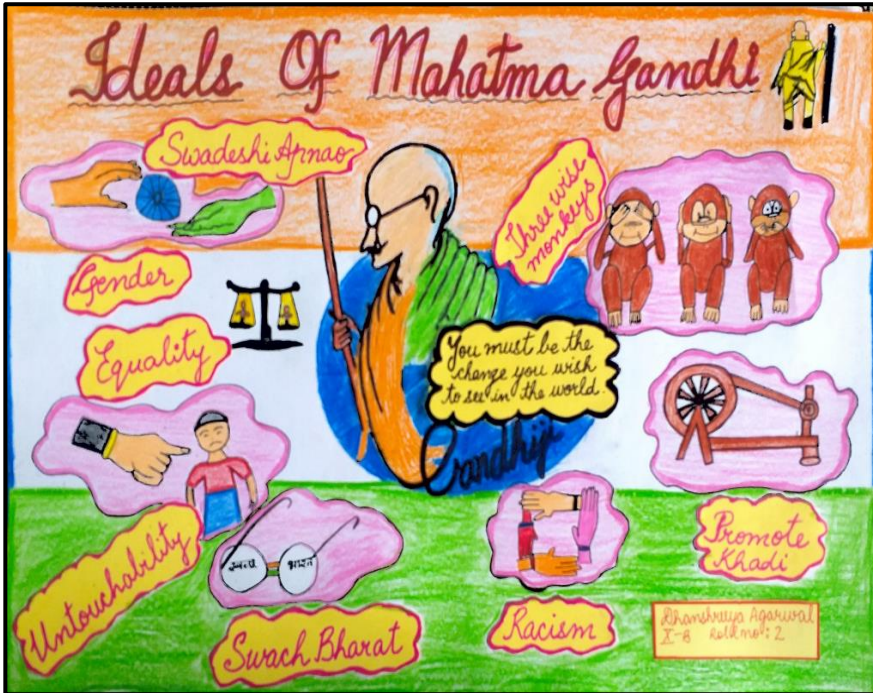 Ideals Of Mahatma Gandhi
Swadeshi Apnao
Three wise
monkeys
Gender
Equality
You must be the
change you wish
to see in the world.
Gandhiji
Untouchability
स्वच्छ भारत
Swach Bharat
Racism
Promote
Khadi
Dhanshreeya Agarwal
X-B Roll no: 2